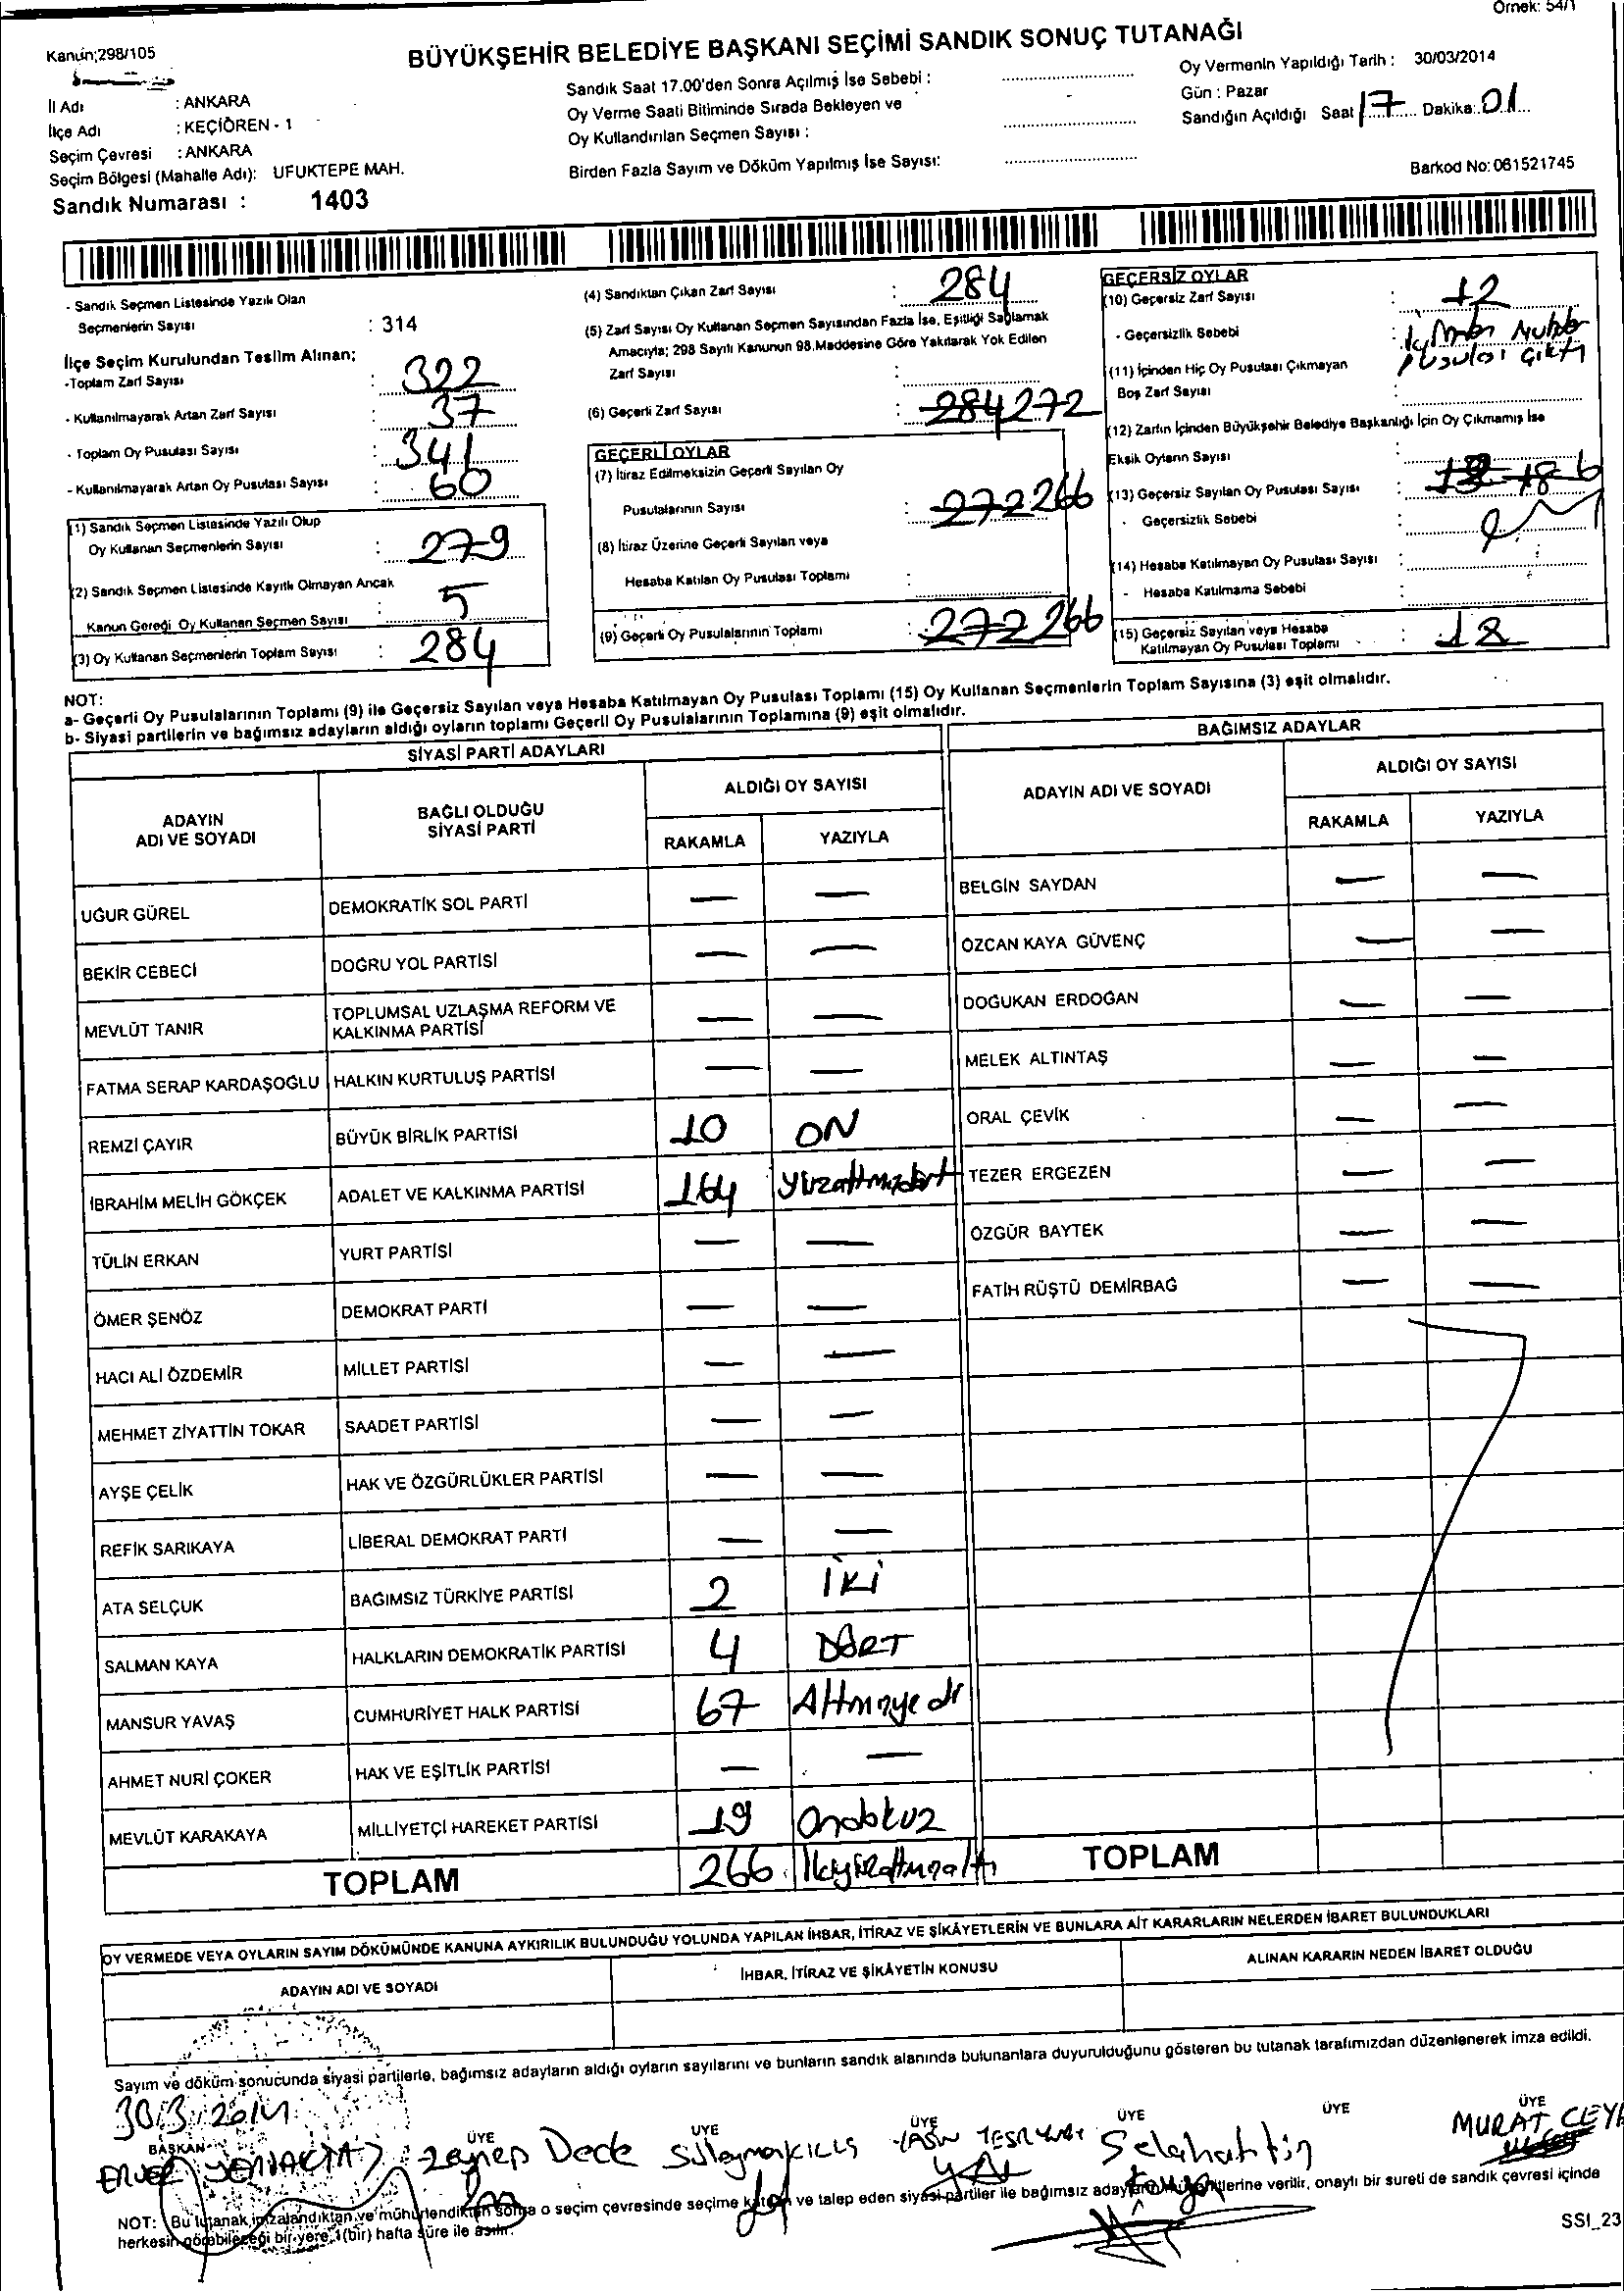 Örnek: 54/1
Kanun;298/105
BÜYÜKŞEHİR BELEDİYE BAŞKANI SEÇİMİ SANDIK SONUÇ TUTANAĞI
İl Adı : ANKARA
İlçe Adı : KEÇİÖREN - 1
Seçim Çevresi : ANKARA
Seçim Bölgesi (Mahalle Adı): UFUKTEPE MAH.
Sandık Numarası : 1403
Sandık Saat 17.00'den Sonra Açılmış İse Sebebi :
Oy Verme Saati Bitiminde Sırada Bekleyen ve
Oy Kullandırılan Seçmen Sayısı :
Birden Fazla Sayım ve Döküm Yapılmış İse Sayısı:
Oy Vermenin Yapıldığı Tarih : 30/03/2014
Gün : Pazar
Sandığın Açıldığı Saat 17 Dakika: 01
Barkod No: 061521745
- Sandık Seçmen Listesinde Yazılı Olan
Seçmenlerin Sayısı : 314
İlçe Seçim Kurulundan Teslim Alınan;
-Toplam Zarf Sayısı : 322
- Kullanılmayarak Artan Zarf Sayısı : 37
- Toplam Oy Pusulası Sayısı : 341
- Kullanılmayarak Artan Oy Pusulası Sayısı : 60
(1) Sandık Seçmen Listesinde Yazılı Olup
Oy Kullanan Seçmenlerin Sayısı : 279
(2) Sandık Seçmen Listesinde Kayıtlı Olmayan Ancak
Kanun Gereği Oy Kullanan Seçmen Sayısı : 5
(3) Oy Kullanan Seçmenlerin Toplam Sayısı : 284
(4) Sandıktan Çıkan Zarf Sayısı : 284
(5) Zarf Sayısı Oy Kullanan Seçmen Sayısından Fazla İse, Eşitliği Sağlamak
Amacıyla; 298 Sayılı Kanunun 98.Maddesine Göre Yakılarak Yok Edilen
Zarf Sayısı :
(6) Geçerli Zarf Sayısı : 284 272
GEÇERLİ OYLAR
(7) İtiraz Edilmeksizin Geçerli Sayılan Oy
Pusulalarının Sayısı : 272 266
(8) İtiraz Üzerine Geçerli Sayılan veya
Hesaba Katılan Oy Pusulası Toplamı :
(9) Geçerli Oy Pusulalarının Toplamı : 272 266
GEÇERSİZ OYLAR
(10) Geçersiz Zarf Sayısı : 12
- Geçersizlik Sebebi :
pusulası Çıktı
(11) İçinden Hiç Oy Pusulası Çıkmayan
Boş Zarf Sayısı :
(12) Zarfın İçinden Büyükşehir Belediye Başkanlığı İçin Oy Çıkmamış İse
Eksik Oyların Sayısı :
(13) Geçersiz Sayılan Oy Pusulası Sayısı : 18 6
- Geçersizlik Sebebi :
(14) Hesaba Katılmayan Oy Pusulası Sayısı :
- Hesaba Katılmama Sebebi :
(15) Geçersiz Sayılan veya Hesaba
Katılmayan Oy Pusulası Toplamı : 18
NOT:
a- Geçerli Oy Pusulalarının Toplamı (9) ile Geçersiz Sayılan veya Hesaba Katılmayan Oy Pusulası Toplamı (15) Oy Kullanan Seçmenlerin Toplam Sayısına (3) eşit olmalıdır.
b- Siyasi partilerin ve bağımsız adayların aldığı oyların toplamı Geçerli Oy Pusulalarının Toplamına (9) eşit olmalıdır.
SİYASİ PARTİ ADAYLARI
ADAYIN ADI VE SOYADI BAĞLI OLDUĞU SİYASİ PARTİ ALDIĞI OY SAYISI
RAKAMLA YAZIYLA
UĞUR GÜREL DEMOKRATİK SOL PARTİ — —
BEKİR CEBECİ DOĞRU YOL PARTİSİ — —
MEVLÜT TANIR TOPLUMSAL UZLAŞMA REFORM VE KALKINMA PARTİSİ — —
FATMA SERAP KARDAŞOĞLU HALKIN KURTULUŞ PARTİSİ — —
REMZİ ÇAYIR BÜYÜK BİRLİK PARTİSİ 10 ON
İBRAHİM MELİH GÖKÇEK ADALET VE KALKINMA PARTİSİ 164 Yüzaltmışdört
TÜLİN ERKAN YURT PARTİSİ — —
ÖMER ŞENÖZ DEMOKRAT PARTİ — —
HACI ALİ ÖZDEMİR MİLLET PARTİSİ — —
MEHMET ZİYATTİN TOKAR SAADET PARTİSİ — —
AYŞE ÇELİK HAK VE ÖZGÜRLÜKLER PARTİSİ — —
REFİK SARIKAYA LİBERAL DEMOKRAT PARTİ — —
ATA SELÇUK BAĞIMSIZ TÜRKİYE PARTİSİ 2 İKİ
SALMAN KAYA HALKLARIN DEMOKRATİK PARTİSİ 4 DÖRT
MANSUR YAVAŞ CUMHURİYET HALK PARTİSİ 67 Altmışyedi
AHMET NURİ ÇOKER HAK VE EŞİTLİK PARTİSİ — —
MEVLÜT KARAKAYA MİLLİYETÇİ HAREKET PARTİSİ 19 ondokuz
TOPLAM 266 İkiyüzaltmışaltı
BAĞIMSIZ ADAYLAR
ADAYIN ADI VE SOYADI ALDIĞI OY SAYISI
RAKAMLA YAZIYLA
BELGİN SAYDAN — —
ÖZCAN KAYA GÜVENÇ — —
DOĞUKAN ERDOĞAN — —
MELEK ALTINTAŞ — —
ORAL ÇEVİK — —
TEZER ERGEZEN — —
ÖZGÜR BAYTEK — —
FATİH RÜŞTÜ DEMİRBAĞ — —
TOPLAM
OY VERMEDE VEYA OYLARIN SAYIM DÖKÜMÜNDE KANUNA AYKIRILIK BULUNDUĞU YOLUNDA YAPILAN İHBAR, İTİRAZ VE ŞİKÂYETLERİN VE BUNLARA AİT KARARLARIN NELERDEN İBARET BULUNDUKLARI
ADAYIN ADI VE SOYADI İHBAR, İTİRAZ VE ŞİKÂYETİN KONUSU ALINAN KARARIN NEDEN İBARET OLDUĞU
Sayım ve döküm sonucunda siyasi partilerle, bağımsız adayların aldığı oyların sayılarını ve bunların sandık alanında bulunanlara duyurulduğunu gösteren bu tutanak tarafımızdan düzenlenerek imza edildi.
30/3/2014
BAŞKAN ÜYE ÜYE ÜYE ÜYE ÜYE ÜYE
Zeynep Dede Süleyman KILIÇ Selahattin MURAT
NOT: Bu tutanak imzalandıktan ve mühürlendikten sonra o seçim çevresinde seçime katılan ve talep eden siyasi partiler ile bağımsız adayların müşahitlerine verilir, onaylı bir sureti de sandık çevresi içinde
herkesin görebileceği bir yere 1(bir) hafta süre ile asılır.
SSI_23